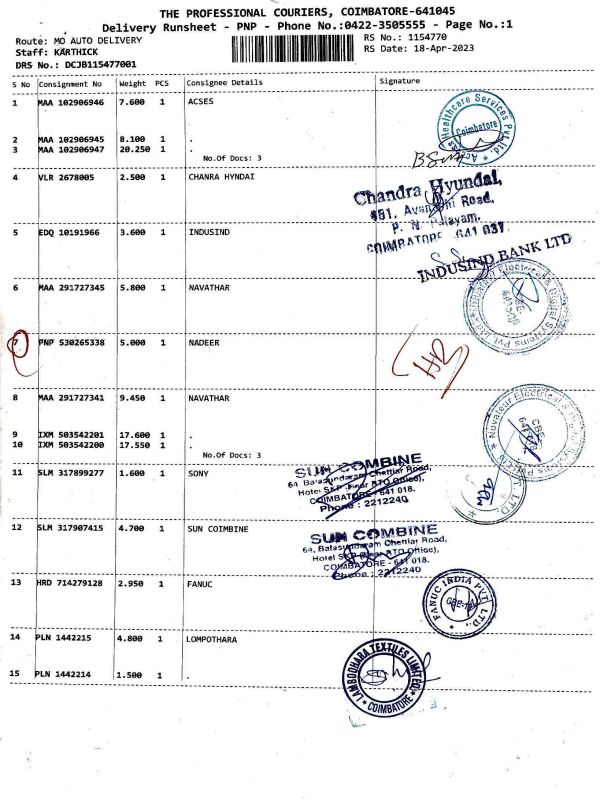 THE PROFESSIONAL COURIERS, COIMBATORE-641045
Delivery Runsheet - PNP - Phone No.:0422-3505555 - Page No.:1
Route: MO AUTO DELIVERY
RS No.: 1154770
Staff: KARTHICK
RS Date: 18-Apr-2023
DRS No.: DCJB115477001
S No Consignment No Weight PCS Consignee Details Signature
1 MAA 102906946 7.600 1 ACSES
Healthcare Services Pvt Ltd.
Coimbatore
2 MAA 102906945 8.100 1 .
3 MAA 102906947 20.250 1 .
No.Of Docs: 3
4 VLR 2678005 2.500 1 CHANRA HYNDAI
Chandra Hyundai,
Road.
P. N.
COIMBATORE 641 037
5 EDQ 10191966 3.600 1 INDUSIND
INDUSIND BANK LTD
6 MAA 291727345 5.800 1 NAVATHAR
Electrical & Digital Systems Pvt Ltd
7 PNP 530265338 5.000 1 NADEER
8 MAA 291727341 9.450 1 NAVATHAR
Novateur Electrical &
CBE
9 IXM 503542201 17.600 1 .
10 IXM 503542200 17.550 1 .
No.Of Docs: 3
11 SLM 317899277 1.600 1 SONY
SUN COMBINE
64, Balasundaram Chettiar Road,
Hotel SKP (Near RTO Office),
COIMBATORE - 641 018.
Phone : 2212240
12 SLM 317907415 4.700 1 SUN COIMBINE
SUN COMBINE
64, Balasundaram Chettiar Road,
Hotel SKP (Near RTO Office),
COIMBATORE - 641 018.
Phone : 2212240
13 HRD 714279128 2.950 1 FANUC
FANUC INDIA PVT. LTD.,
14 PLN 1442215 4.800 1 LOMPOTHARA
LAMBODHARA TEXTILES LIMITED
COIMBATORE
15 PLN 1442214 1.500 1 .